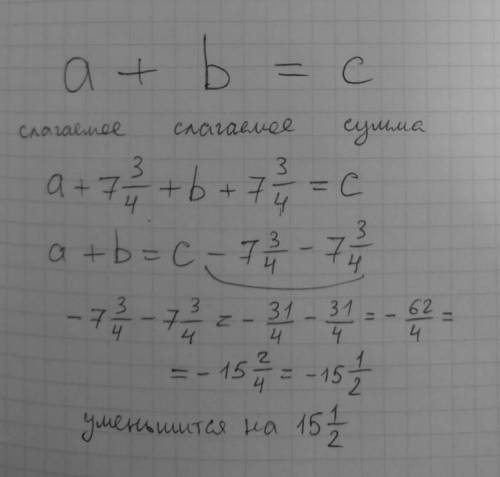 a + b = c
слагаемое слагаемое сумма
a + 7 3/4 + b + 7 3/4 = c
a + b = c - 7 3/4 - 7 3/4
- 7 3/4 - 7 3/4 = - 31/4 - 31/4 = - 62/4 =
= - 15 2/4 = - 15 1/2
уменьшится на 15 1/2